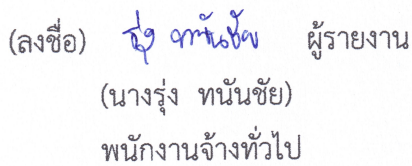 (ลงชื่อ) รุ่ง ทนันชัย ผู้รายงาน
(นางรุ่ง ทนันชัย)
พนักงานจ้างทั่วไป